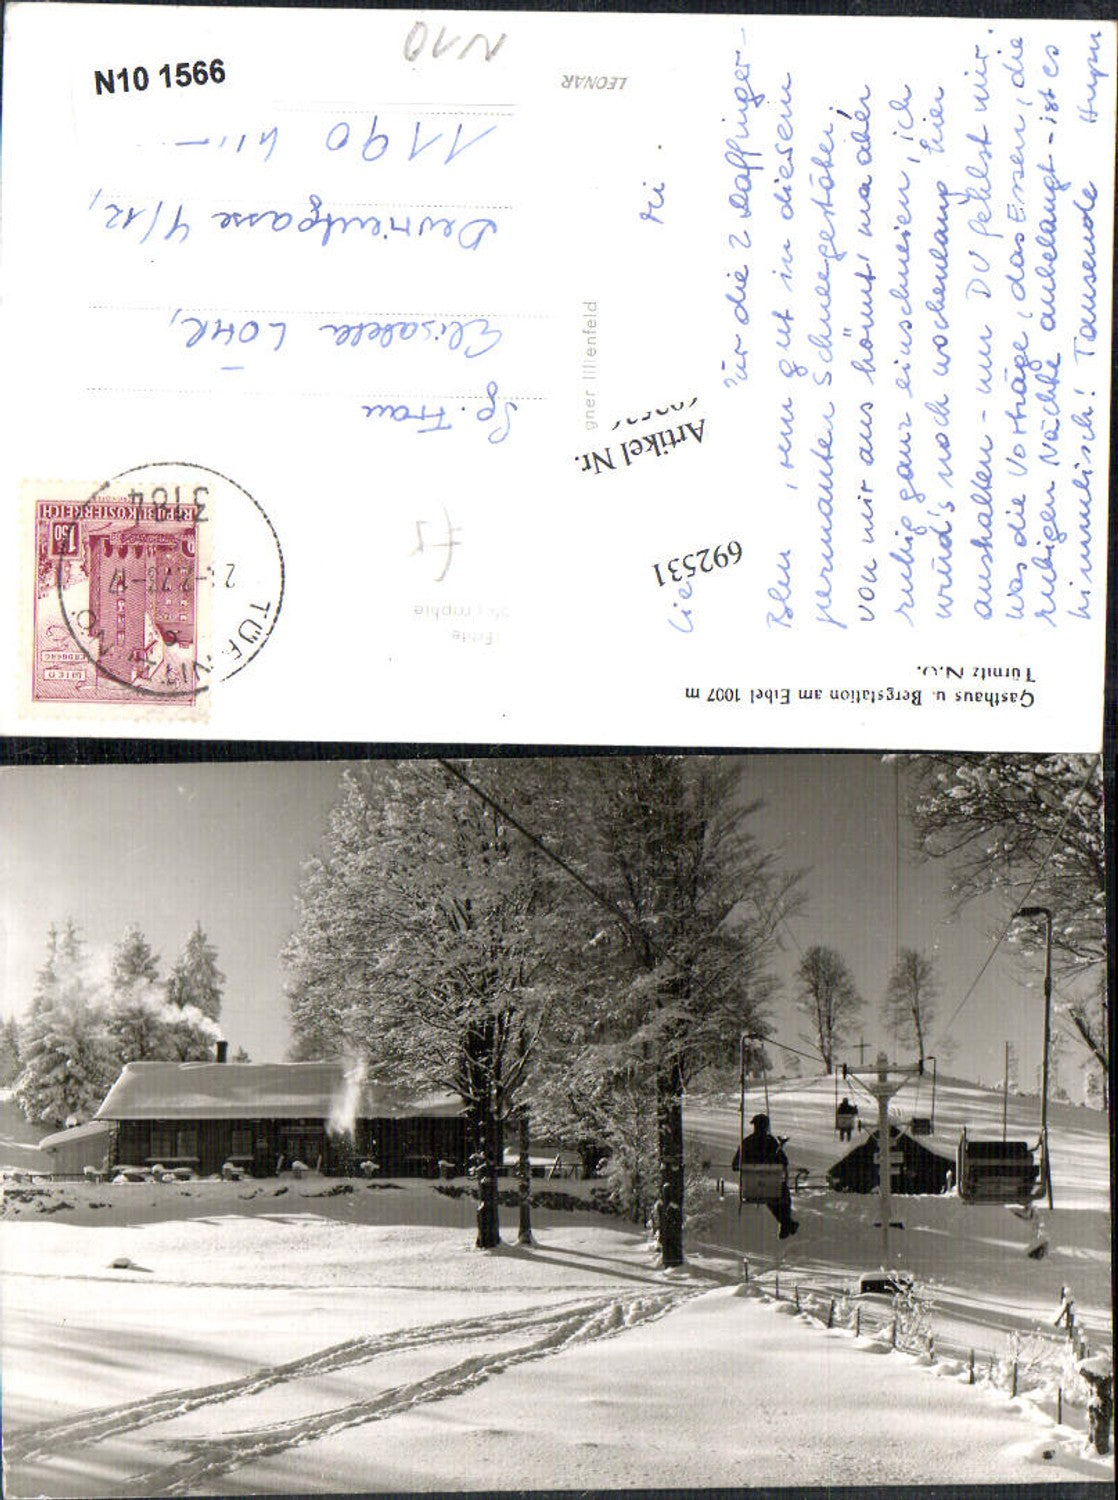 N10 1566
N10
LEONAR
Gasthaus u. Bergstation am Eibel 1007 m
Türnitz N.Ö.
692531
Artikel Nr.
gner lilienfeld
Echte
REPUBLIK ÖSTERREICH
1.50
WIEN
ERDBERG
3184
TÜRNITZ, NÖ.
Sg. Frau
Elisabella LÖHR,
Devrientgasse 4/12,
1190 Wien
für die 2
gut in diesem
permanenten Schneegestöber,
von mir aus könnt' ma aber
ruhig ganz einschneien, ich
würd's noch wochenlang hier
aushalten - nur DU fehlst mir.
Was die Vorträge, das Essen, die
ruhigen Nächte anbelangt - ist es
himmlisch! Tausende